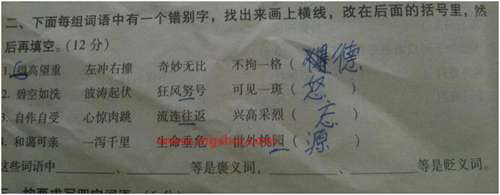 二、下面每组词语中有一个错别字，找出来画上横线，改在后面的括号里，然
后再填空。(12 分)
1. 得高望重 左冲右撞 奇妙无比 不拘一格( 德 )
2. 碧空如洗 波涛起伏 狂风努号 可见一斑( 怒 )
3. 自作自受 心惊肉跳 流连往返 兴高采烈( 忘 )
4. 和蔼可亲 一泻千里 生命垂危 世外桃园( 源 )
这些词语中______、______等是褒义词，______、______等是贬义词。